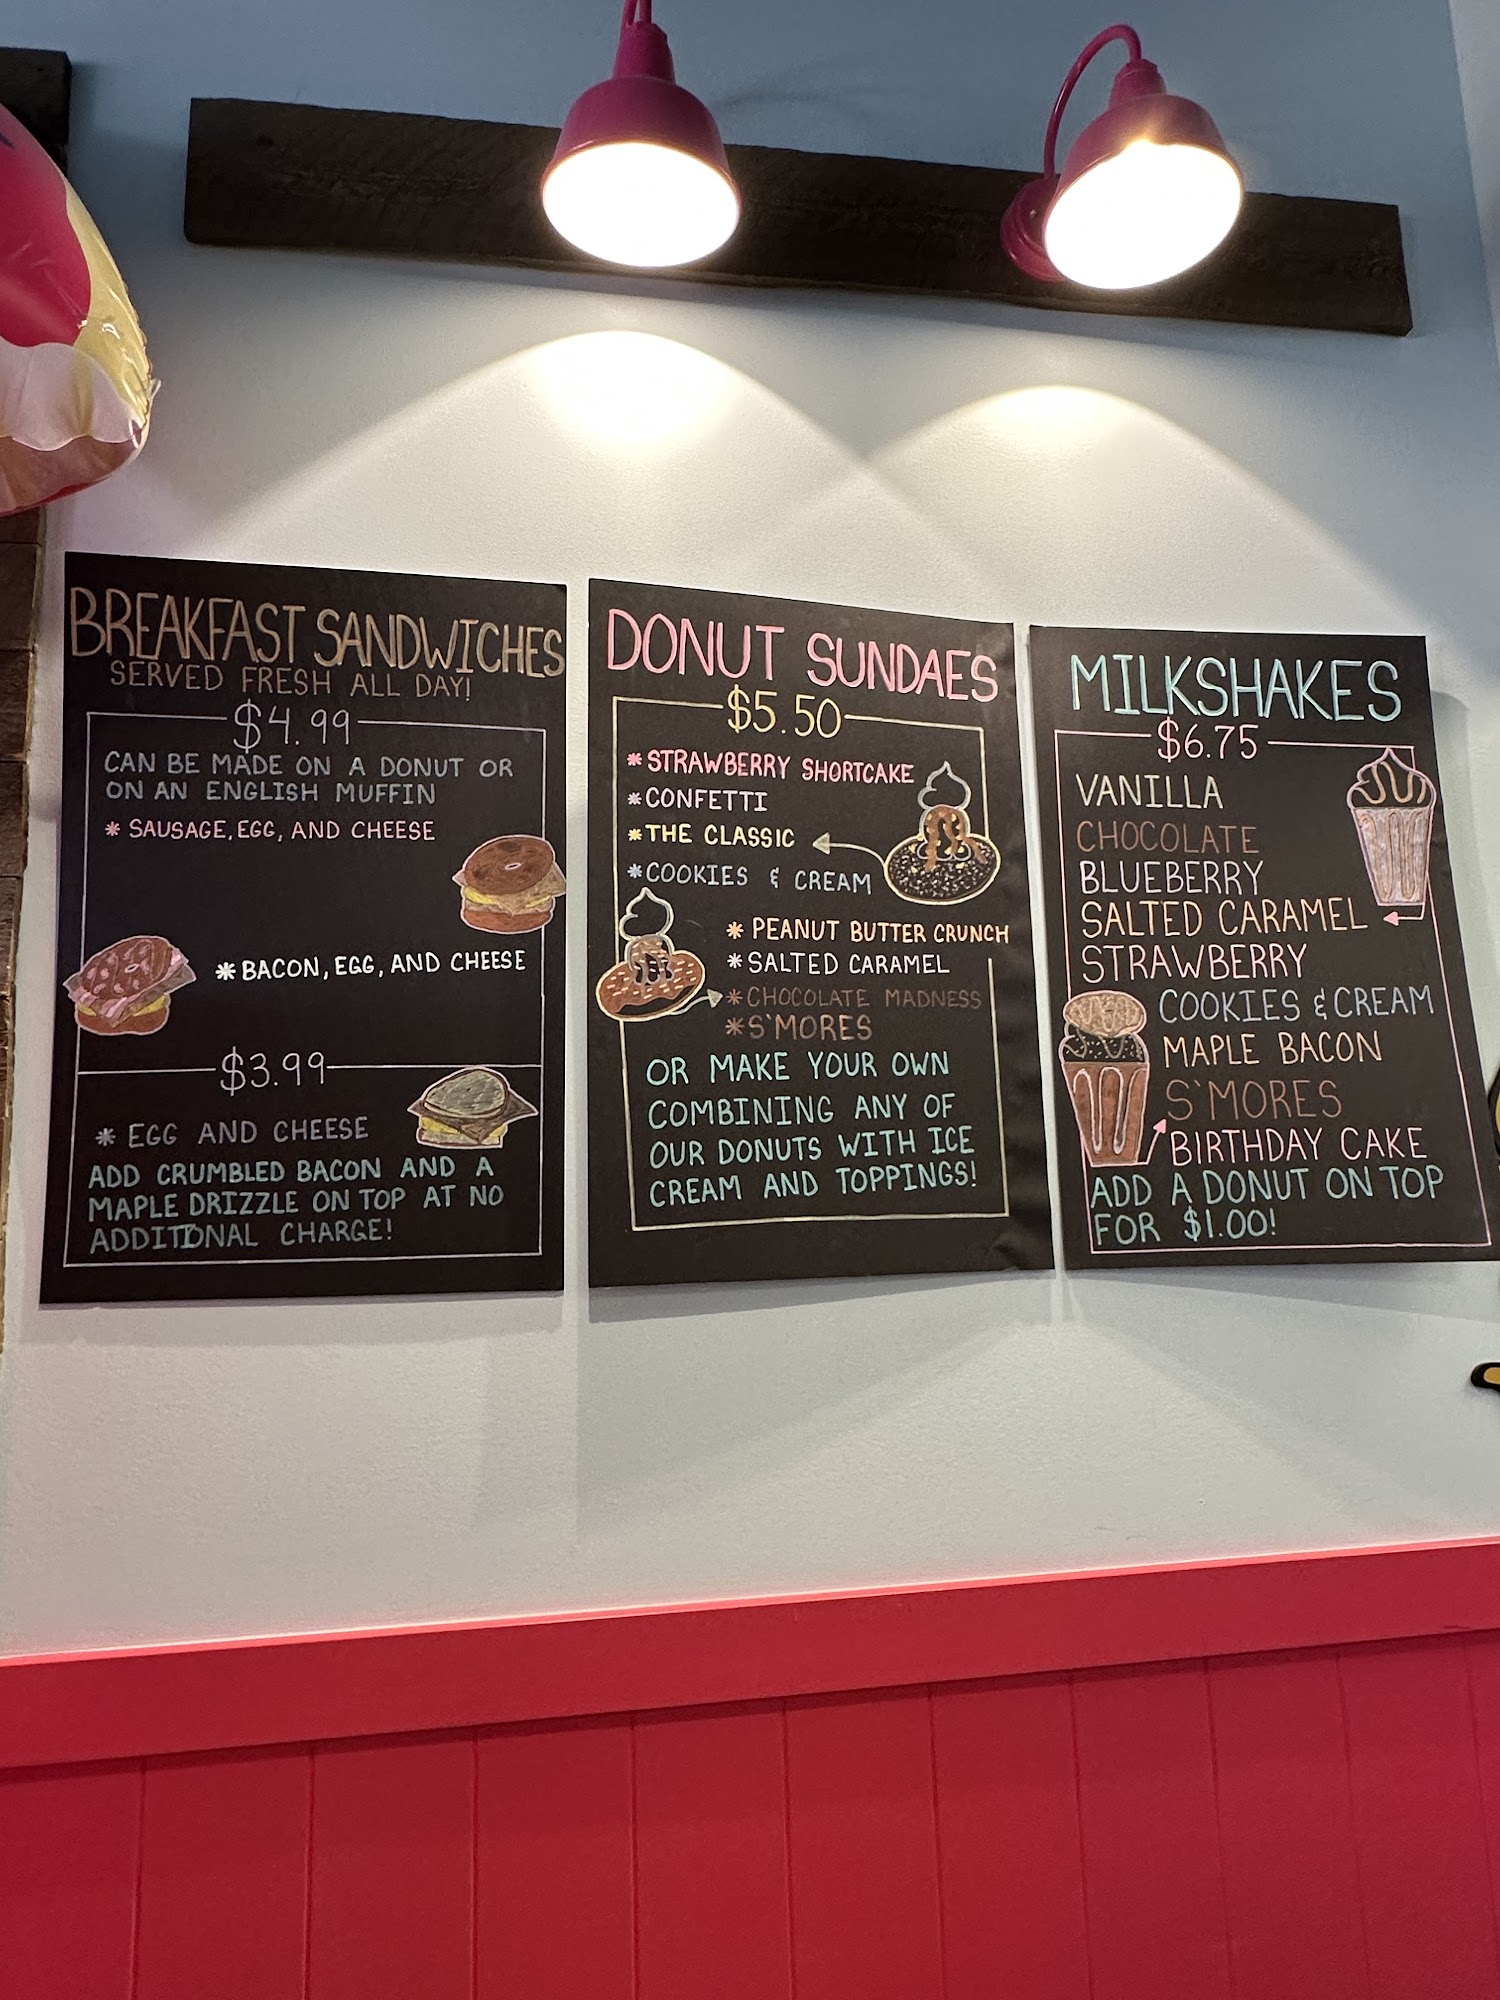 BREAKFAST SANDWICHES
SERVED FRESH ALL DAY!
$4.99
CAN BE MADE ON A DONUT OR
ON AN ENGLISH MUFFIN
* SAUSAGE, EGG, AND CHEESE
* BACON, EGG, AND CHEESE
$3.99
* EGG AND CHEESE
ADD CRUMBLED BACON AND A
MAPLE DRIZZLE ON TOP AT NO
ADDITIONAL CHARGE!
DONUT SUNDAES
$5.50
* STRAWBERRY SHORTCAKE
* CONFETTI
* THE CLASSIC
* COOKIES & CREAM
* PEANUT BUTTER CRUNCH
* SALTED CARAMEL
* CHOCOLATE MADNESS
* S'MORES
OR MAKE YOUR OWN
COMBINING ANY OF
OUR DONUTS WITH ICE
CREAM AND TOPPINGS!
MILKSHAKES
$6.75
VANILLA
CHOCOLATE
BLUEBERRY
SALTED CARAMEL
STRAWBERRY
COOKIES & CREAM
MAPLE BACON
S'MORES
BIRTHDAY CAKE
ADD A DONUT ON TOP
FOR $1.00!